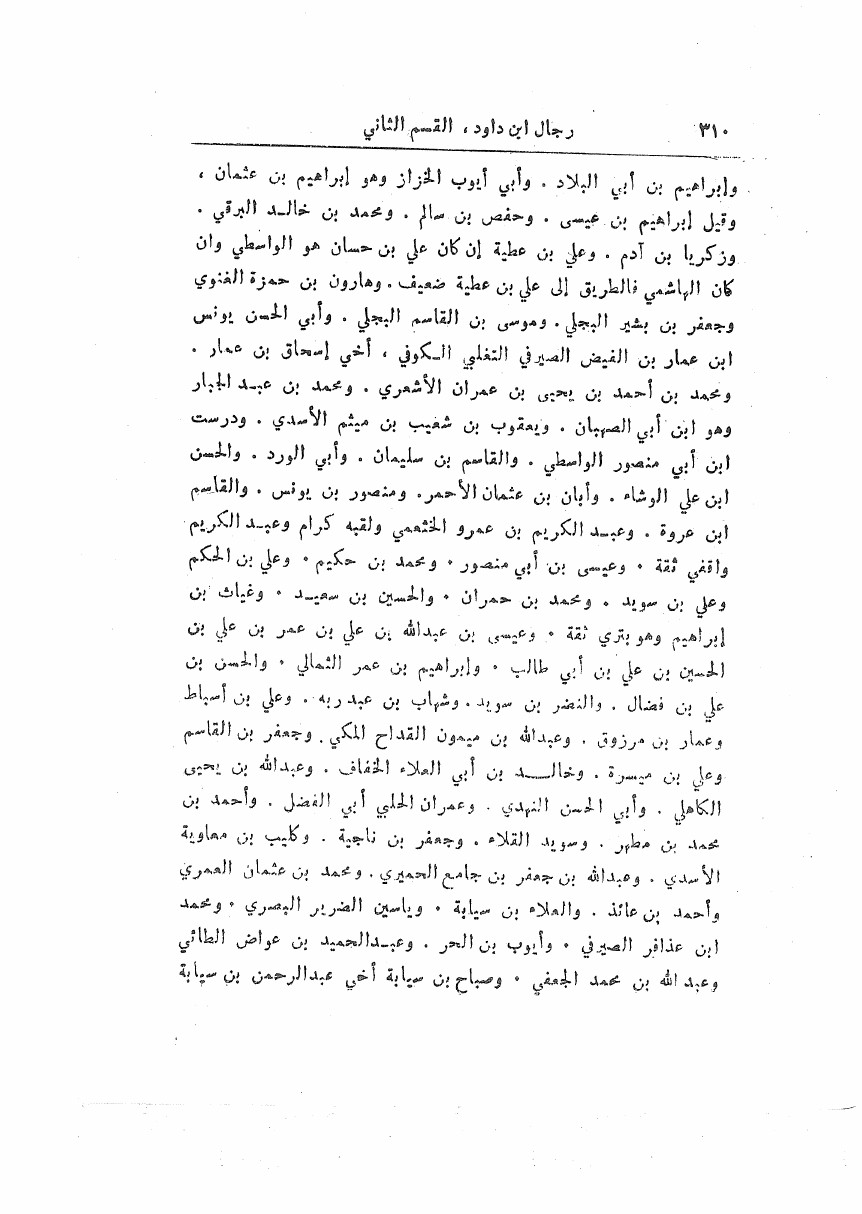 ٣١٠ رجال ابن داود ، القسم الثاني
وإبراهيم بن أبي البلاد . وأبي أيوب الخزاز وهو إبراهيم بن عثمان ،
وقيل إبراهيم بن عيسى . وحفص بن سالم . ومحمد بن خالد البرقي .
وزكريا بن آدم . وعلي بن عطية إن كان علي بن حسان هو الواسطي وان
كان الهاشمي فالطريق إلى علي بن عطية ضعيف . وهارون بن حمزة الغنوي
وجعفر بن بشير البجلي . وموسى بن القاسم البجلي . وأبي الحسن يونس
ابن عمار بن الفيض الصيرفي التغلبي الكوفي ، أخي إسحاق بن عمار .
ومحمد بن أحمد بن يحيى بن عمران الأشعري . ومحمد بن عبد الجبار
وهو ابن أبي الصهبان . ويعقوب بن شعيب بن ميثم الأسدي . ودرست
ابن أبي منصور الواسطي . والقاسم بن سليمان . وأبي الورد . والحسن
ابن علي الوشاء . وأبان بن عثمان الأحمر . ومنصور بن يونس . والقاسم
ابن عروة . وعبد الكريم بن عمرو الخثعمي ولقبه كرام وعبد الكريم
واقفي ثقة . وعيسى بن أبي منصور . ومحمد بن حكيم . وعلي بن الحكم
وعلي بن سويد . ومحمد بن حمران . والحسين بن سعيد . وغياث بن
إبراهيم وهو بتري ثقة . وعيسى بن عبدالله بن علي بن عمر بن علي بن
الحسين بن علي بن أبي طالب . وإبراهيم بن عمر الثمالي . والحسن بن
علي بن فضال . والنضر بن سويد . وشهاب بن عبد ربه . وعلي بن أسباط
وعمار بن مرزوق . وعبدالله بن ميمون القداح المكي . وجعفر بن القاسم
وعلي بن ميسرة . وخالد بن أبي العلاء الخفاف . وعبدالله بن يحيى
الكاهلي . وأبي الحسن النهدي . وعمران الحلبي أبي الفضل . وأحمد بن
محمد بن مطهر . وسويد القلاء . وجعفر بن ناجية . وكليب بن معاوية
الأسدي . وعبدالله بن جعفر بن جامع الحميري . ومحمد بن عثمان العمري
وأحمد بن عائذ . والعلاء بن سيابة . وياسين الضرير البصري . ومحمد
ابن عذافر الصيرفي . وأيوب بن الحر . وعبدالحميد بن عواض الطائي
وعبد الله بن محمد الجعفي . وصباح بن سيابة أخي عبدالرحمن بن سيابة